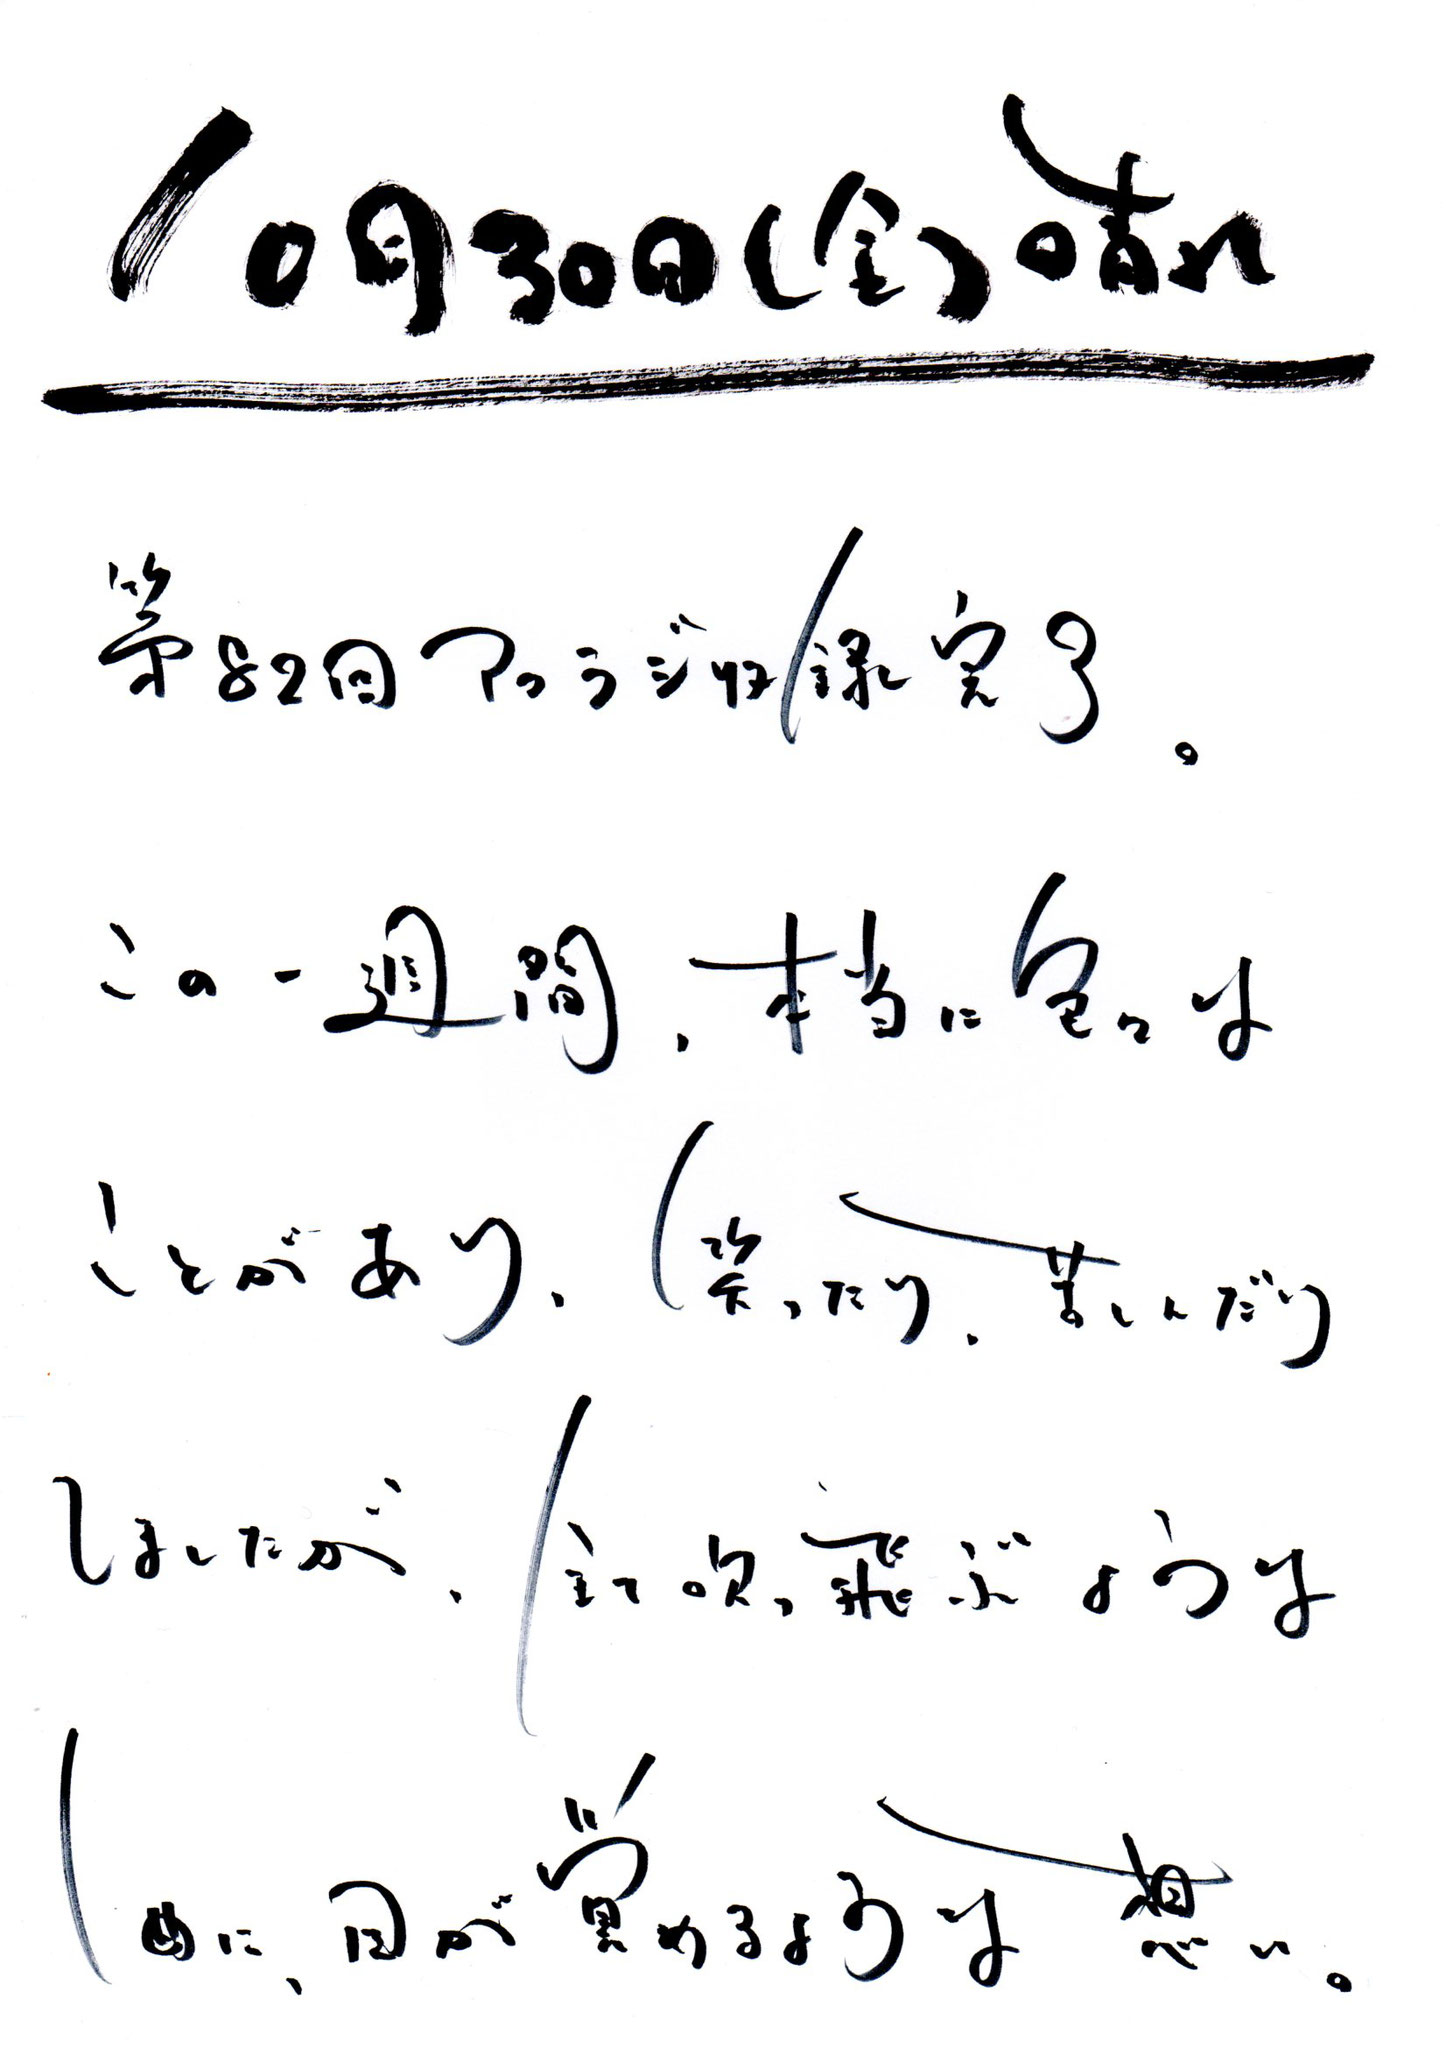 10月30日(金)晴れ
第82回アツラジ収録完了。
この一週間、本当に色々な
ことがあり、笑ったり、苦しんだり
しましたが、全て吹っ飛ぶような
曲に、目が覚めるような想い。